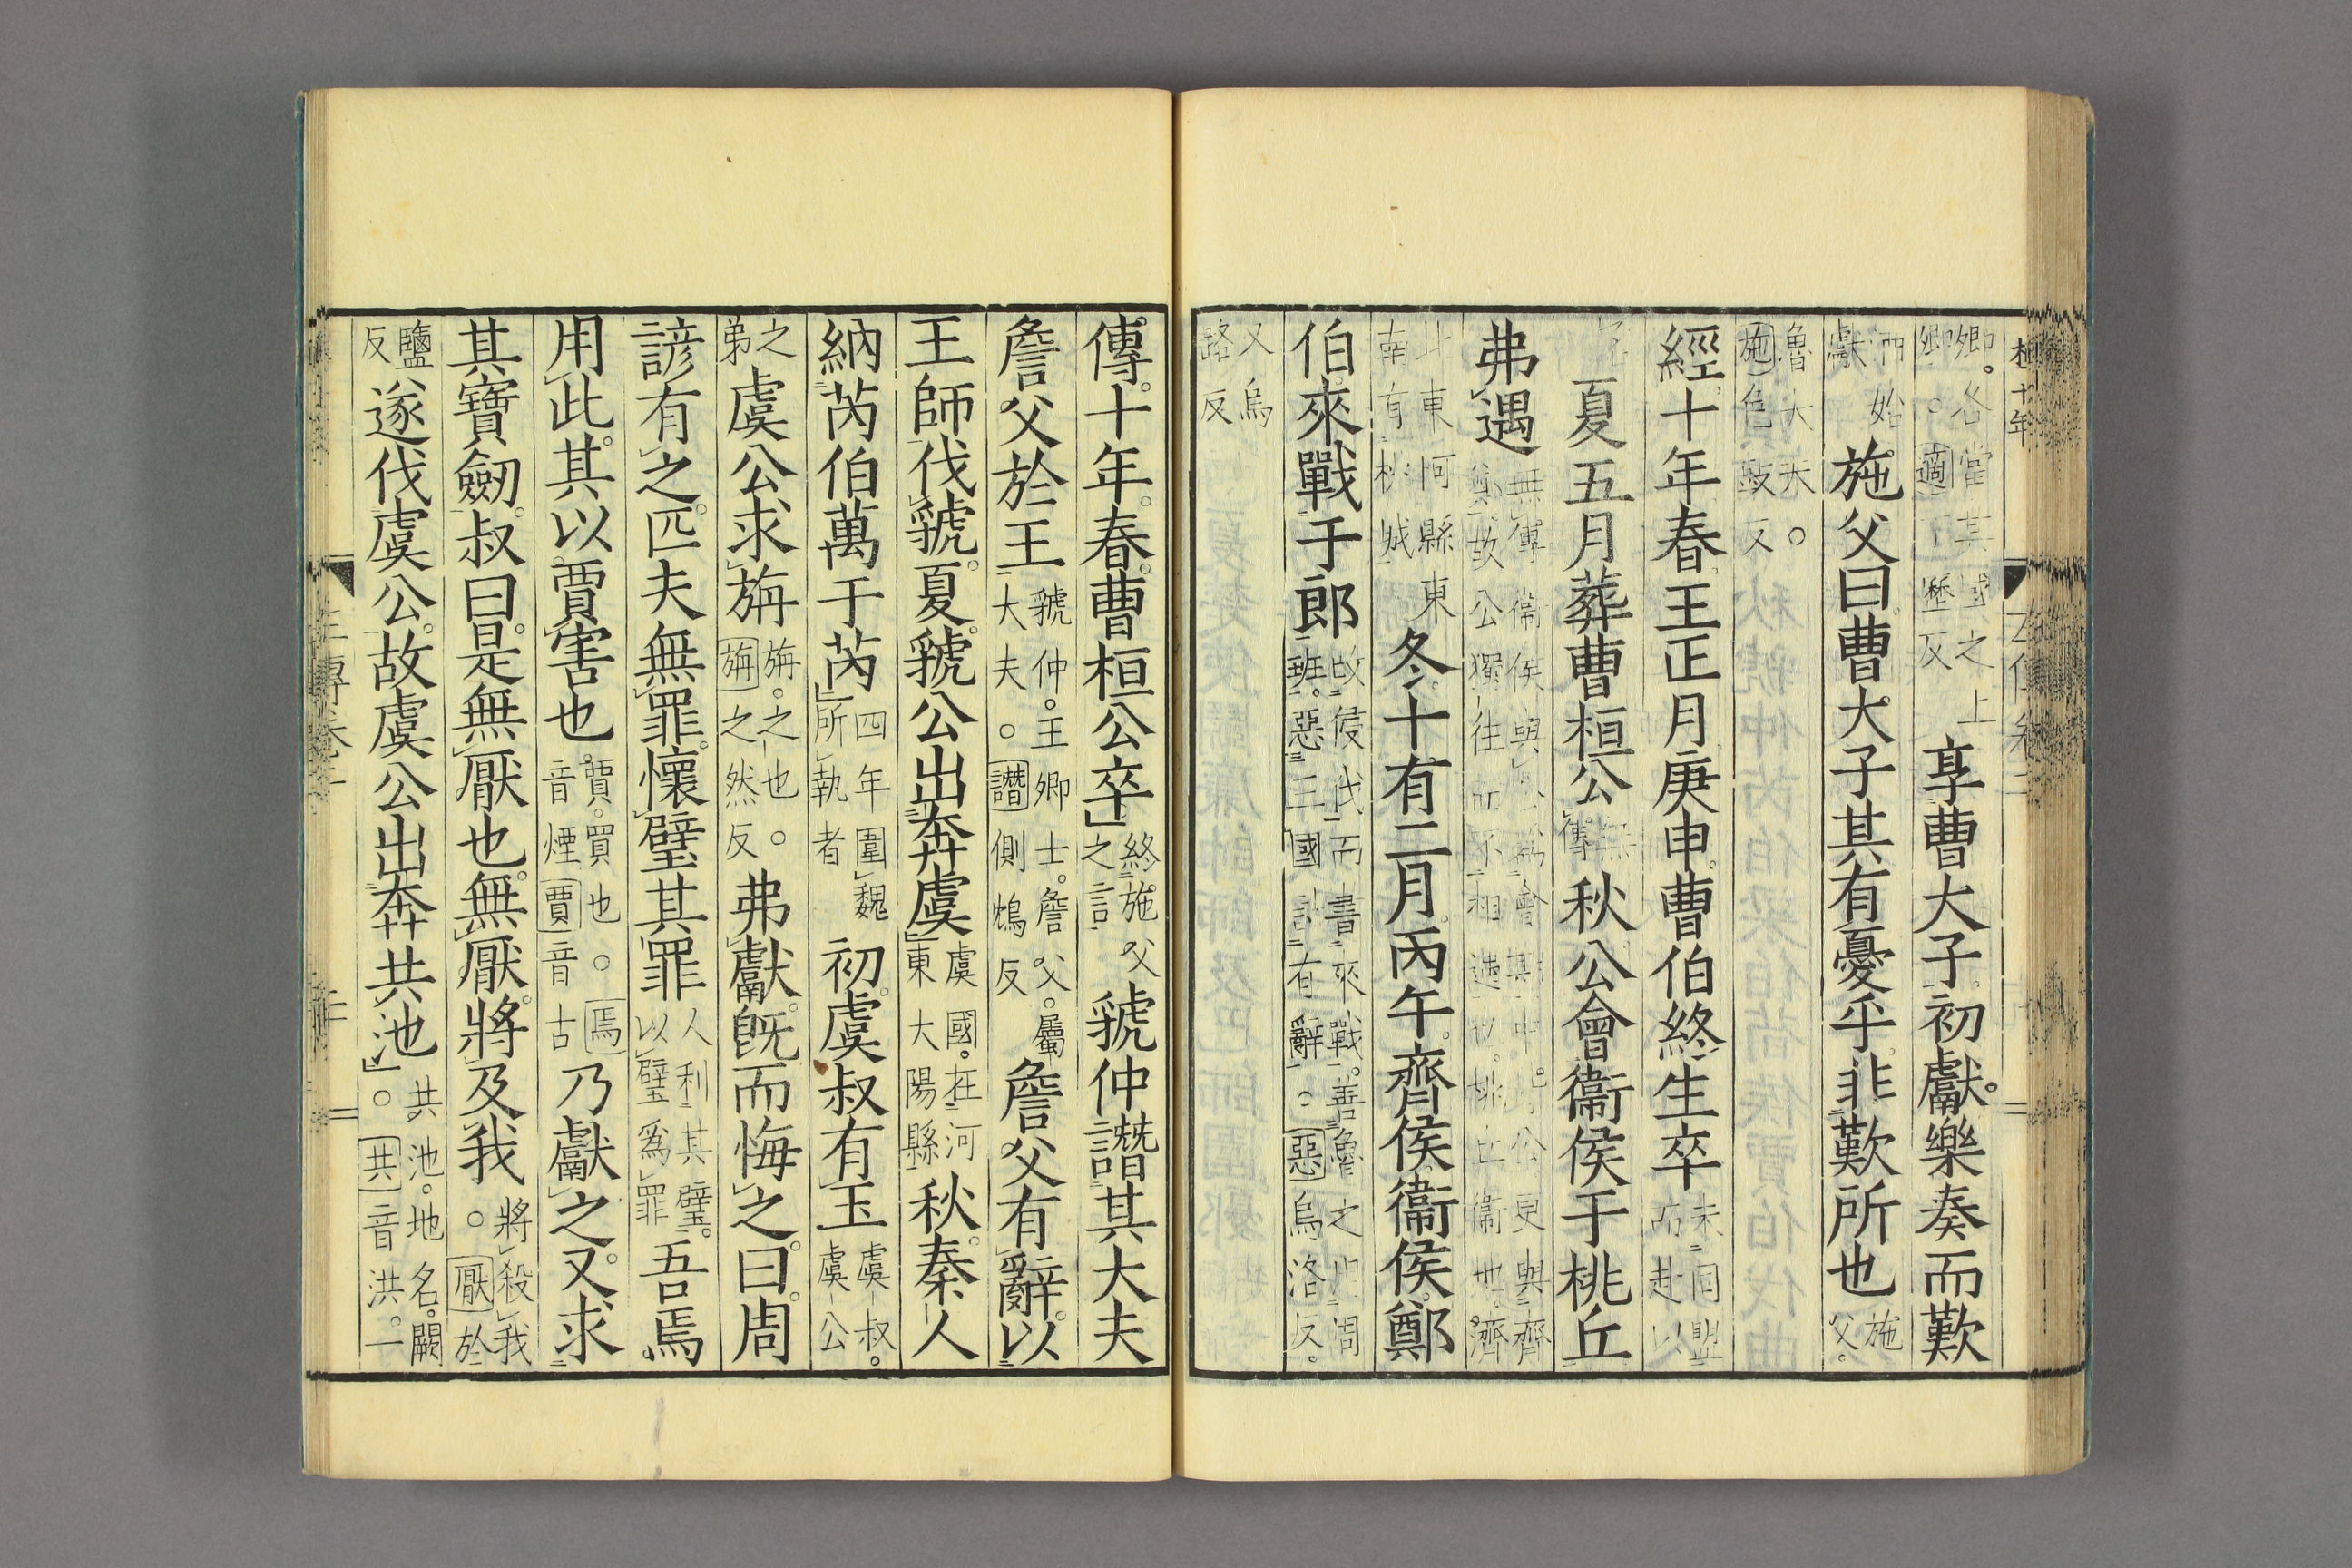 桓十年
卿。各當其國之上
卿。適丁歷反
享曹大子初獻。樂奏而歎
酒始
獻
施父曰曹大子其有憂乎非歎所也
施
父。
魯大夫。
施色豉反
經十年春王正月庚申。曹伯終生卒
未同盟
而赴以
名
夏五月葬曹桓公
無
傳
秋公會衞侯于桃丘
弗遇
無傳衞侯與公爲會期中。背公更與齊
鄭故公獨往而不相遇也。桃丘衞地。濟
北東阿縣東
南有桃城
冬十有二月丙午。齊侯衞侯鄭
伯來戰于郎
改侵伐而書來戰。善魯之用周
班。惡三國討有辭。惡烏洛反。
又烏
路反
傳。十年。春。曹桓公卒
終。施父
之言
虢仲譖其大夫
詹父於王
虢仲。王卿士。詹父。屬
大夫。譖側鴆反
詹父有辭。以
王師伐虢。夏。虢公出奔虞
虞國。在河
東大陽縣
秋。秦人
納芮伯萬于芮
四年圍魏
所執者
初。虞叔有玉
虞叔。
虞公
之
弟
虞公求旃
旃。之也。
旃之然反
弗獻。旣而悔之。曰。周
諺有之。匹夫無罪。懷璧其罪
人利其璧。
以璧爲罪
吾焉
用此。其以賈害也
賈。買也。焉
音煙賈音古
乃獻之。又求
其寶劒。叔曰。是無厭也。無厭。將及我
將殺我
。厭於
鹽
反
遂伐虞公。故虞公出奔共池
共池。地名。闕
。共音洪。一